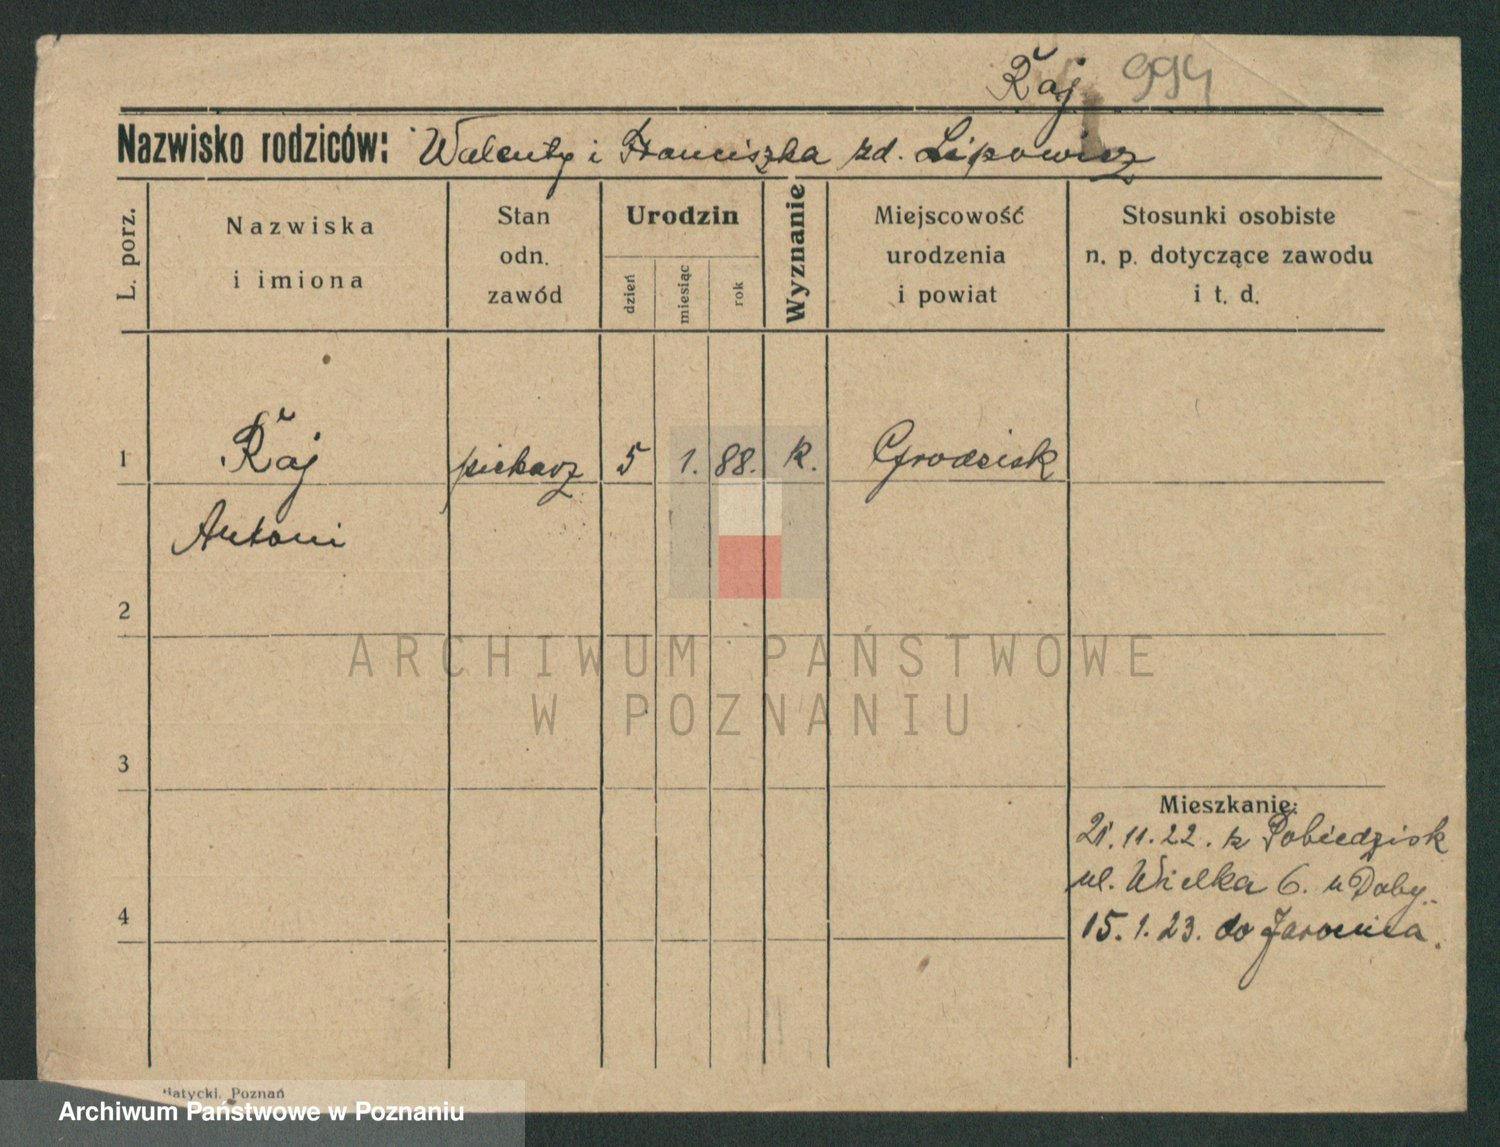 Raj 994
Nazwisko rodziców: Walenty i Franciszka zd. Lipowicz
L. porz.
Nazwiska
i imiona
Stan
odn.
zawód
Urodzin
dzień
miesiąc
rok
Wyznanie
Miejscowość
urodzenia
i powiat
Stosunki osobiste
n. p. dotyczące zawodu
i t. d.
1 Raj piekarz 5 1. 88. k. Grodzisk
Antoni
2
ARCHIWUM PAŃSTWOWE
W POZNANIU
3
Mieszkanie:
21.11.22. z Pobiedzisk
ul. Wielka 6. u Daby..
4
15.1.23. do Jarocina.
Poznań
Archiwum Państwowe w Poznaniu